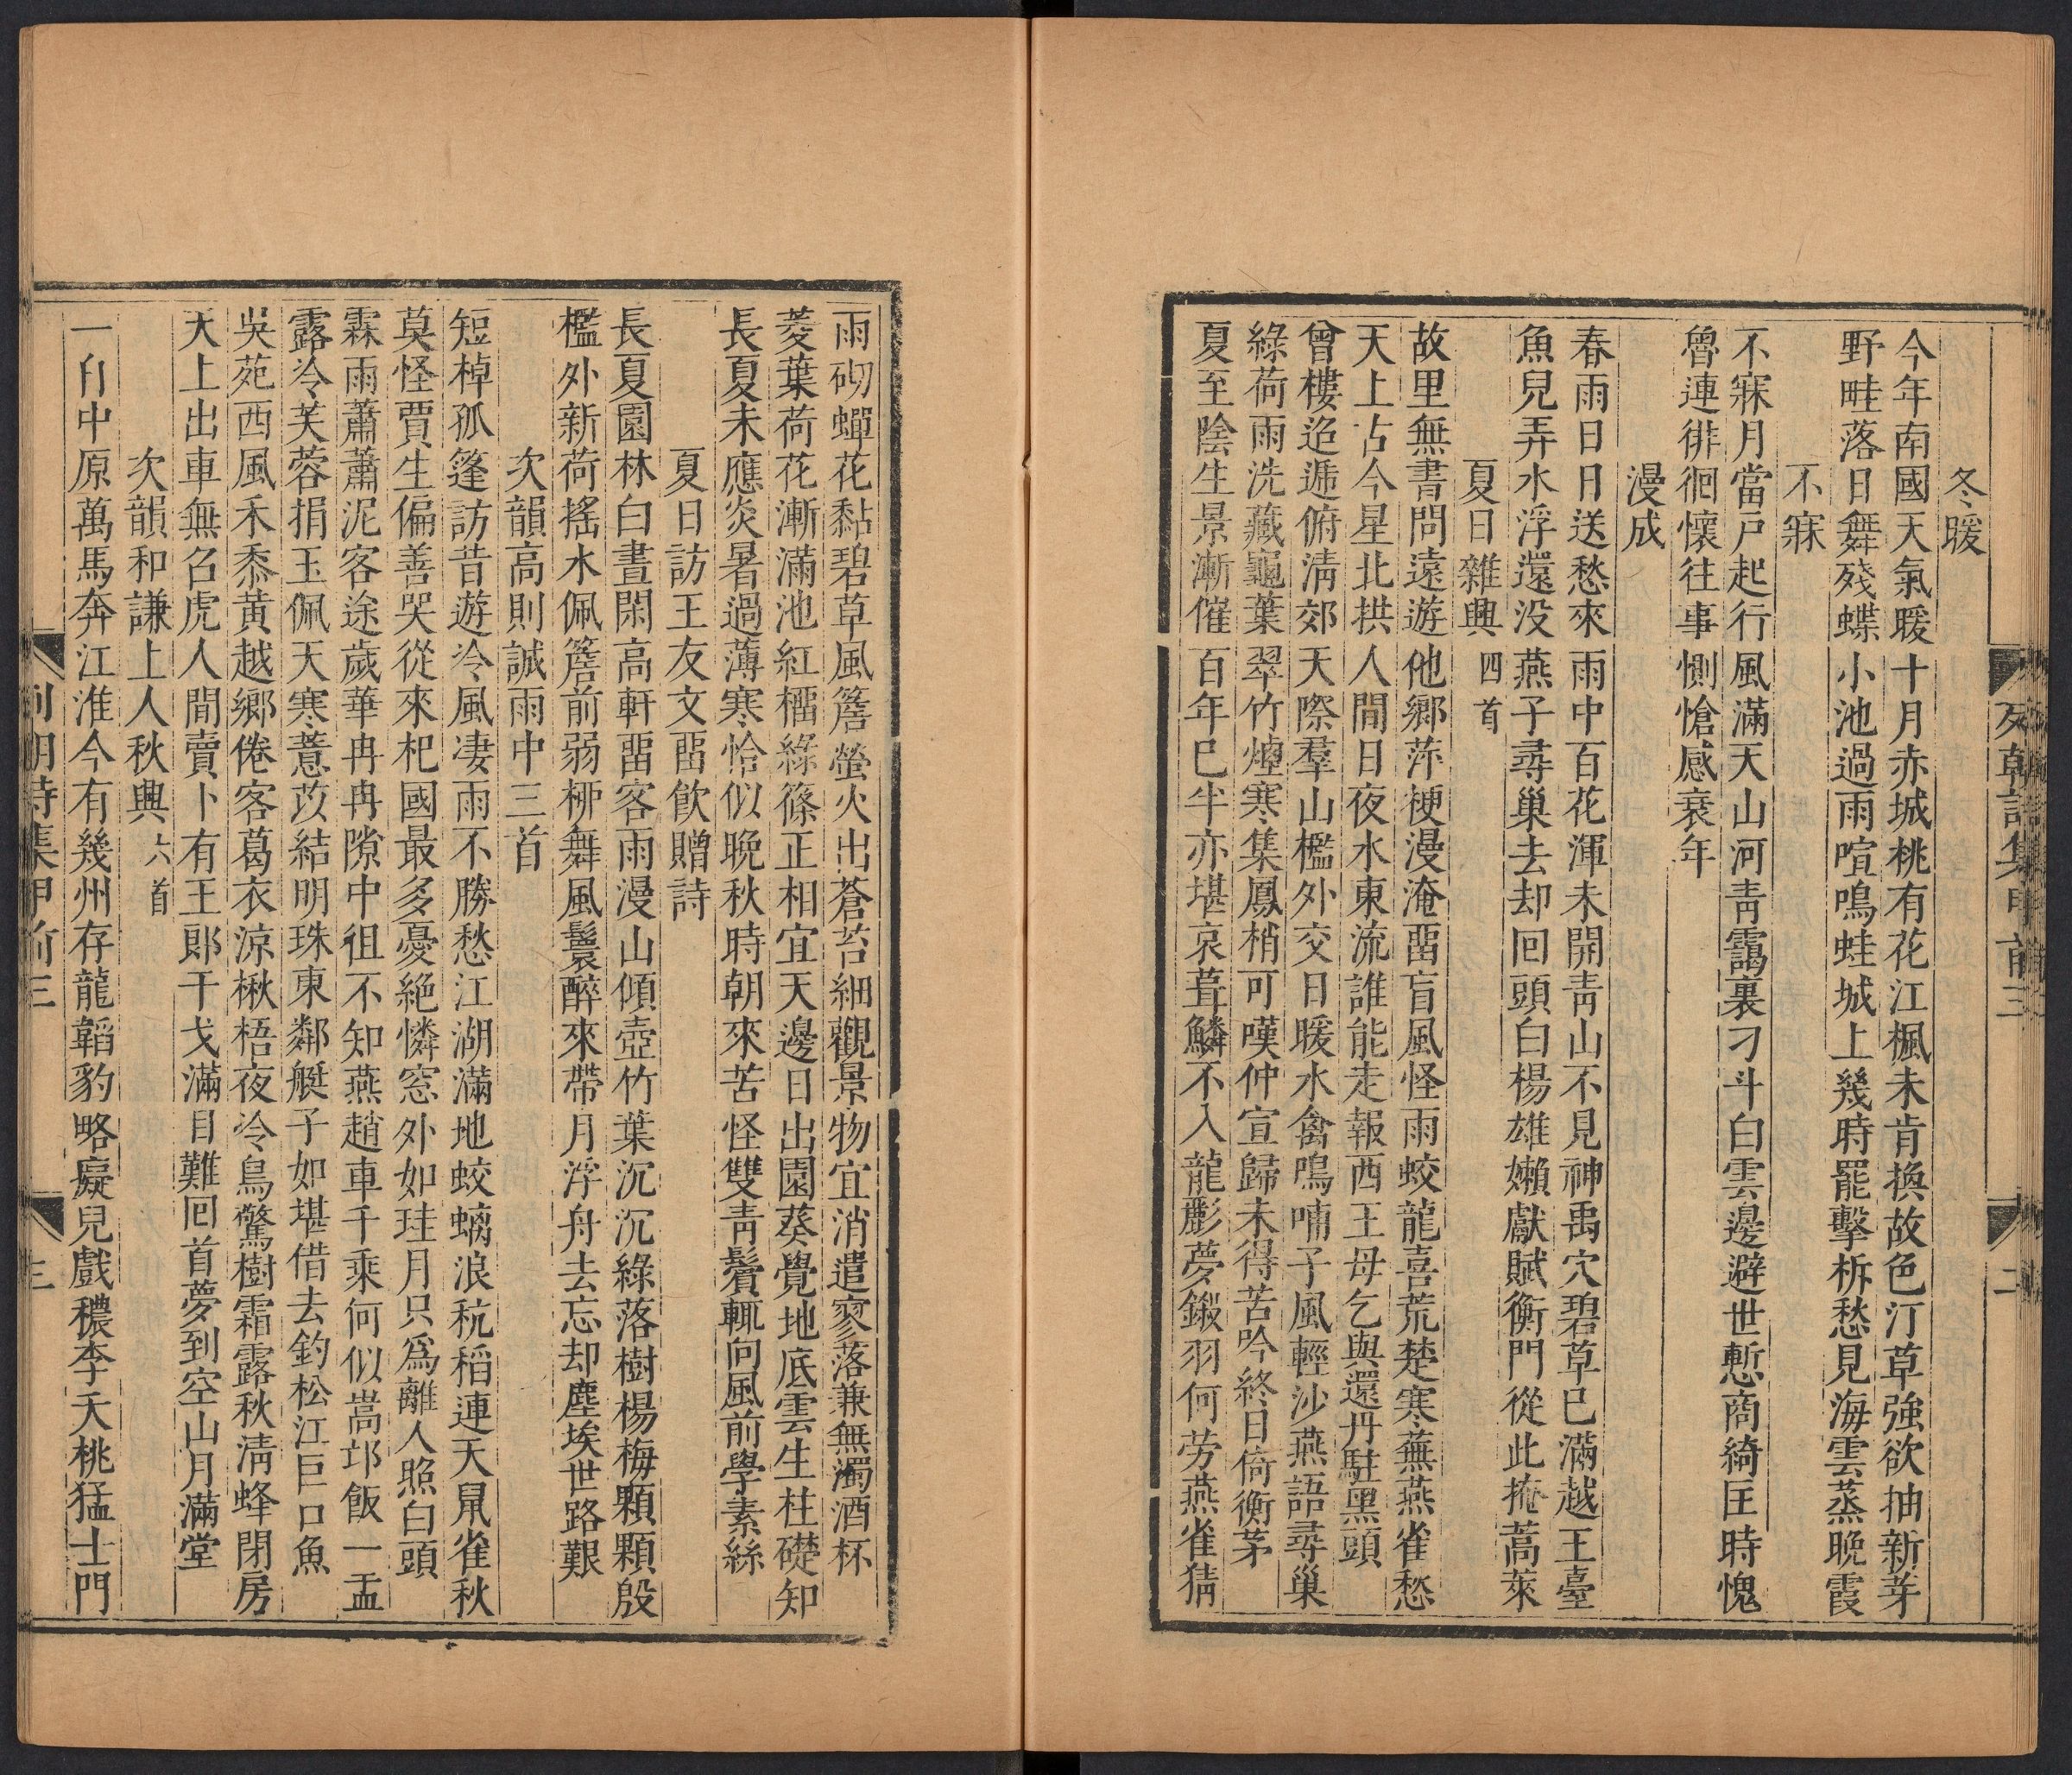 冬暖
今年南國天氣暖十月赤城桃有花江楓未肯換故色汀草強欲抽新芽
野畦落日舞殘蝶小池過雨喧鳴蛙城上幾時罷擊柝愁見海雲蒸晚霞
不寐
不寐月當戸起行風滿天山河青靄裏刁斗白雲邊避世慙商綺匡時愧
魯連徘徊懷往事惻愴感衰年
漫成
春雨日日送愁來雨中百花渾未開青山不見神禹穴碧草巳滿越王臺
魚兒弄水浮還没燕子尋巢去却回頭白楊雄嬾獻賦衡門從此掩蒿萊
夏日雜興四首
故里無書問遠遊他鄉萍梗漫淹畱盲風怪雨蛟龍喜荒楚寒蕪燕雀愁
天上古今星北拱人間日夜水東流誰能走報西王母乞與還丹駐黑頭
曾樓迢遞俯淸郊天際羣山檻外交日暖水禽鳴哺子風輕沙燕語尋巢
綠荷雨洗藏龜葉翠竹煙寒集鳳梢可嘆仲宣歸未得苦吟終日倚衡茅
夏至陰生景漸催百年巳半亦堪哀葺鱗不入龍影夢鎩羽何劳燕雀猜
列朝詩集甲前三
二
雨砌蟬花黏碧草風簷螢火出蒼苔細觀景物宜消遣寥落兼無濁酒杯
菱葉荷花漸滿池紅榴綠篠正相宜天邊日出園葵覺地底雲生柱礎知
長夏未應炎暑過薄寒恰似晚秋時朝來苦怪雙靑鬢輒向風前學素絲
夏日訪王友文畱飲贈詩
長夏園林白晝閑高軒畱客雨漫山傾壺竹葉沉沉綠落樹楊梅顆顆殷
檻外新荷搖水佩簷前弱柳舞風鬟醉來帶月浮舟去忘却塵埃世路艱
次韻高則誠雨中三首
短棹孤篷訪昔遊冷風凄雨不勝愁江湖滿地蛟螭浪秔稻連天鼠雀秋
莫怪賈生偏善哭從來杞國最多憂絶憐窓外如珪月只爲離人照白頭
霖雨蕭蕭泥客途歲華冉冉隙中徂不知燕趙車千乘何似嵩邙飯一盂
露冷芙蓉捐玉佩天寒薏苡結明珠東鄰艇子如堪借去釣松江巨口魚
吳苑西風禾黍黃越鄉倦客葛衣涼楸梧夜冷鳥驚樹霜露秋淸蜂閉房
天上出車無召虎人間賣卜有王郎干戈滿目難回首夢到空山月滿堂
次韻和謙上人秋興六首
一自中原萬馬奔江淮今有幾州存龍韜豹略癡兒戲穠李夭桃猛士門
列朝詩集甲前三
三